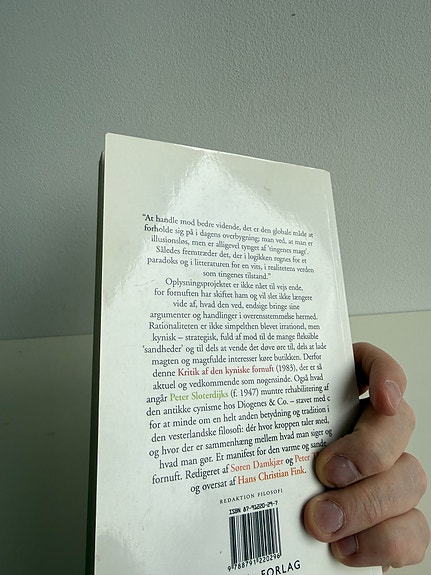 "At handle mod bedre vidende, det er den globale måde at
forholde sig på i dagens overbygning; man ved, at man er
illusionsløs, men er alligevel tynget af 'tingenes magt'.
Således fremtræder det, der i logikken regnes for et
paradoks og i litteraturen for en vits, i realitetens verden
som tingenes tilstand."
Oplysningsprojektet er ikke nået til vejs ende,
for fornuften har skiftet ham og vil slet ikke længere
vide af, hvad den ved, endsige bringe sine
argumenter og handlinger i overensstemmelse hermed.
Rationaliteten er ikke simpelthen blevet irrationel, men
kynisk – strategisk, fuld af mod til de mange fleksible
'sandheder' og til dels at vende det døve øre til, dels at lade
magten og magtfulde interesser køre butikken. Derfor
denne Kritik af den kyniske fornuft (1983), der er så
aktuel og vedkommende som nogensinde. Også hvad
angår Peter Sloterdijks (f. 1947) muntre rehabilitering af
den antikke cynisme hos Diogenes & Co. – stavet med c
for at minde om en helt anden betydning og tradition i
den vesterlandske filosofi: dér hvor kroppen taler med,
og hvor der er sammenhæng mellem hvad man siger og
hvad man gør. Et manifest for den varme og sande
fornuft. Redigeret af Søren Damkjær og Peter
og oversat af Hans Christian Fink.
REDAKTION FILOSOFI
ISBN 87-91220-29-7
9 788791 220296
FORLAG